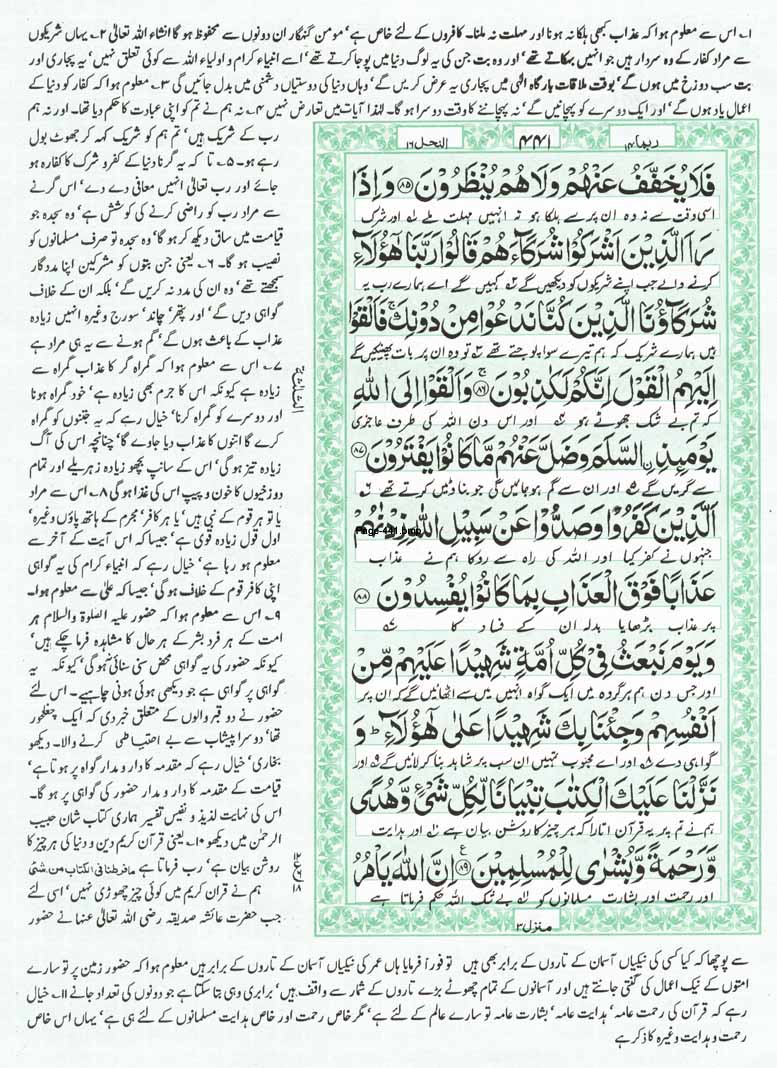 ۱؎ اس سے معلوم ہوا کہ عذاب کبھی ہلکا نہ ہونا اور مہلت نہ ملنا۔ کافروں کے لئے خاص ہے‘ مومن گنہگار ان دونوں سے محفوظ ہو گا انشاء اللہ تعالیٰ ۲؎ یہاں شریکوں
سے مراد کفار کے وہ سردار ہیں جو انہیں بہکاتے تھے‘ اور وہ بت جن کی یہ لوگ دنیا میں پوجا کرتے تھے‘ اسے انبیاء کرام و اولیاء اللہ سے کوئی تعلق نہیں‘ یہ پجاری اور
بت سب دوزخ میں ہوں گے‘ بوقت ملاقات بارگاہ الٰہی میں پجاری یہ عرض کریں گے‘ وہاں دنیا کی دوستیاں دشمنی میں بدل جائیں گی ۳؎ معلوم ہوا کہ کفار کو دنیا کے
اعمال یاد ہوں گے‘ اور ایک دوسرے کو پہچانیں گے‘ نہ پہچاننے کا وقت دوسرا ہو گا۔ لہٰذا آیات میں تعارض نہیں ۴؎ نہ ہم نے تم کو اپنی عبادت کا حکم دیا تھا۔ اور نہ ہم
ربما ۱۴
۴۴۱
النحل ۱۶
فَلَا يُخَفَّفُ عَنْهُمْ وَلَا هُمْ يُنْظَرُوْنَ ﴿۸۵﴾ وَاِذَا
اسی وقت سے نہ وہ ان پر سے ہلکا ہو نہ انہیں مہلت ملے ۱؎ اور شرک
رَاَ الَّذِيْنَ اَشْرَكُوْا شُرَكَآءَهُمْ قَالُوْا رَبَّنَا هٰٓؤُلَآءِ
کرنے والے جب اپنے شریکوں کو دیکھیں گے ۲؎ کہیں گے اے ہمارے رب یہ
شُرَكَآؤُنَا الَّذِيْنَ كُنَّا نَدْعُوْا مِنْ دُوْنِكَ ۚ فَاَلْقَوْا
ہیں ہمارے شریک کہ ہم تیرے سوا پوجتے تھے ۳؎ تو وہ ان پر بات پھینکیں گے
اِلَيْهِمُ الْقَوْلَ اِنَّكُمْ لَكٰذِبُوْنَ ﴿۸۶﴾ وَاَلْقَوْا اِلَى اللّٰهِ
کہ تم بے شک جھوٹے ہو ۴؎ اور اس دن اللہ کی طرف عاجزی
يَوْمَئِذِ ِۨ السَّلَمَ وَضَلَّ عَنْهُمْ مَّا كَانُوْا يَفْتَرُوْنَ ﴿۸۷﴾
سے گریں گے ۵؎ اور ان سے گم ہو جائیں گی جو بناوٹیں کرتے تھے ۶؎
اَلَّذِيْنَ كَفَرُوْا وَصَدُّوْا عَنْ سَبِيْلِ اللّٰهِ زِدْنٰهُمْ
Page-441.bmp
جنہوں نے کفر کیا اور اللہ کی راہ سے روکا ہم نے عذاب
عَذَابًا فَوْقَ الْعَذَابِ بِمَا كَانُوْا يُفْسِدُوْنَ ﴿۸۸﴾
پر عذاب بڑھایا بدلہ ان کے فساد کا ۷؎
وَيَوْمَ نَبْعَثُ فِيْ كُلِّ اُمَّةٍ شَهِيْدًا عَلَيْهِمْ مِّنْ
اور جس دن ہم ہر گروہ میں ایک گواہ انہیں میں سے اٹھائیں گے کہ ان پر
اَنْفُسِهِمْ وَجِئْنَا بِكَ شَهِيْدًا عَلٰى هٰٓؤُلَآءِ ؕ وَ
گواہی دے ۸؎ اور اے محبوب تمہیں ان سب پر شاہد بنا کر لائیں گے ۹؎ اور
نَزَّلْنَا عَلَيْكَ الْكِتٰبَ تِبْيَانًا لِّكُلِّ شَيْءٍ وَّهُدًى
ہم نے تم پر یہ قرآن اتارا کہ ہر چیز کا روشن بیان ہے ۱۰؎ اور ہدایت
وَّرَحْمَةً وَّبُشْرٰى لِلْمُسْلِمِيْنَ ﴿۸۹﴾ اِنَّ اللّٰهَ يَاْمُرُ
اور رحمت اور بشارت مسلمانوں کو ۱۱؎ بے شک اللہ حکم فرماتا ہے
منزل ۳
رب کے شریک ہیں‘ تم ہم کو شریک کہہ کر جھوٹ بول
رہے ہو۔ ۵؎ تا کہ یہ گرنا دنیا کے کفر و شرک کا کفارہ ہو
جائے اور رب تعالیٰ انہیں معافی دے دے‘ اس گرنے
سے مراد رب کو راضی کرنے کی کوشش ہے‘ وہ سجدہ جو
قیامت میں ساق دیکھ کر ہو گا‘ وہ سجدہ تو صرف مسلمانوں کو
نصیب ہو گا۔ ۶؎ یعنی جن بتوں کو مشرکین اپنا مددگار
سمجھتے تھے‘ وہ ان کی مدد نہ کریں گے‘ بلکہ ان کے خلاف
گواہی دیں گے‘ اور پتھر‘ چاند‘ سورج وغیرہ انہیں زیادہ
عذاب کے باعث ہوں گے‘ گم ہونے سے یہ ہی مراد ہے
۷؎ اس سے معلوم ہوا کہ گمراہ گر کا عذاب گمراہ سے
زیادہ ہے کیونکہ اس کا جرم بھی زیادہ ہے‘ خود گمراہ ہونا
اور دوسرے کو گمراہ کرنا‘ خیال رہے کہ یہ جتنوں کو گمراہ
کرے گا اتنوں کا عذاب دیا جاوے گا‘ چنانچہ اس کی آگ
زیادہ تیز ہو گی‘ اس کے سانپ بچھو زیادہ زہریلے اور تمام
دوزخیوں کا خون و پیپ اس کی غذا ہو گی ۸؎ اس سے مراد
یا تو ہر قوم کے نبی ہیں‘ یا ہر کافر‘ مجرم کے ہاتھ پاؤں وغیرہ‘
اول قول زیادہ قوی ہے‘ جیسا کہ اس آیت کے آخر سے
معلوم ہو رہا ہے‘ خیال رہے کہ انبیاء کرام کی یہ گواہی
اپنی کافر قوم کے خلاف ہو گی‘ جیسا کہ علیٰ سے معلوم ہوا۔
۹؎ اس سے معلوم ہوا کہ حضور علیہ الصلوٰۃ والسلام ہر
امت کے ہر فرد بشر کے ہر حال کا مشاہدہ فرما چکے ہیں‘
کیونکہ حضور کی یہ گواہی محض سنی سنائی نہ ہو گی‘ کیونکہ یہ
گواہی پر گواہی ہے جو دیکھی ہوئی ہونی چاہیے۔ اس لئے
حضور نے دو قبر والوں کے متعلق خبر دی کہ ایک چغلخور
تھا‘ دوسرا پیشاب سے بے احتیاطی کرنے والا۔ دیکھو
بخاری‘ خیال رہے کہ مقدمہ کا دار و مدار گواہ پر ہو تا ہے‘
قیامت کے مقدمہ کا دار و مدار حضور کی گواہی پر ہو گا۔
اس کی نہایت لذیذ و نفیس تفسیر ہماری کتاب شان حبیب
الرحمٰن میں دیکھو ۱۰؎ یعنی قرآن کریم دین و دنیا کی ہر چیز کا
روشن بیان ہے‘ رب فرماتا ہے مافرطنا فی الکتاب من شئ
ہم نے قرآن کریم میں کوئی چیز چھوڑی نہیں‘ اسی لئے
جب حضرت عائشہ صدیقہ رضی اللہ تعالیٰ عنہا نے حضور
سے پوچھا کہ کیا کسی کی نیکیاں آسمان کے تاروں کے برابر بھی ہیں تو فوراً فرمایا ہاں عمر کی نیکیاں آسمان کے تاروں کے برابر ہیں معلوم ہوا کہ حضور زمین پر تو سارے
امتوں کے نیک اعمال کی گنتی جانتے ہیں اور آسمانوں کے تمام چھوٹے بڑے تاروں کے شمار سے واقف ہیں‘ برابری وہی بتا سکتا ہے جو دونوں کی تعداد جانے ۱۱؎ خیال
رہے کہ قرآن کی رحمت عامہ‘ ہدایت عامہ‘ بشارت عامہ تو سارے عالم کے لئے ہے‘ مگر خاص رحمت اور خاص ہدایت مسلمانوں کے لئے ہی ہے‘ یہاں اس خاص
رحمت و ہدایت وغیرہ کا ذکر ہے